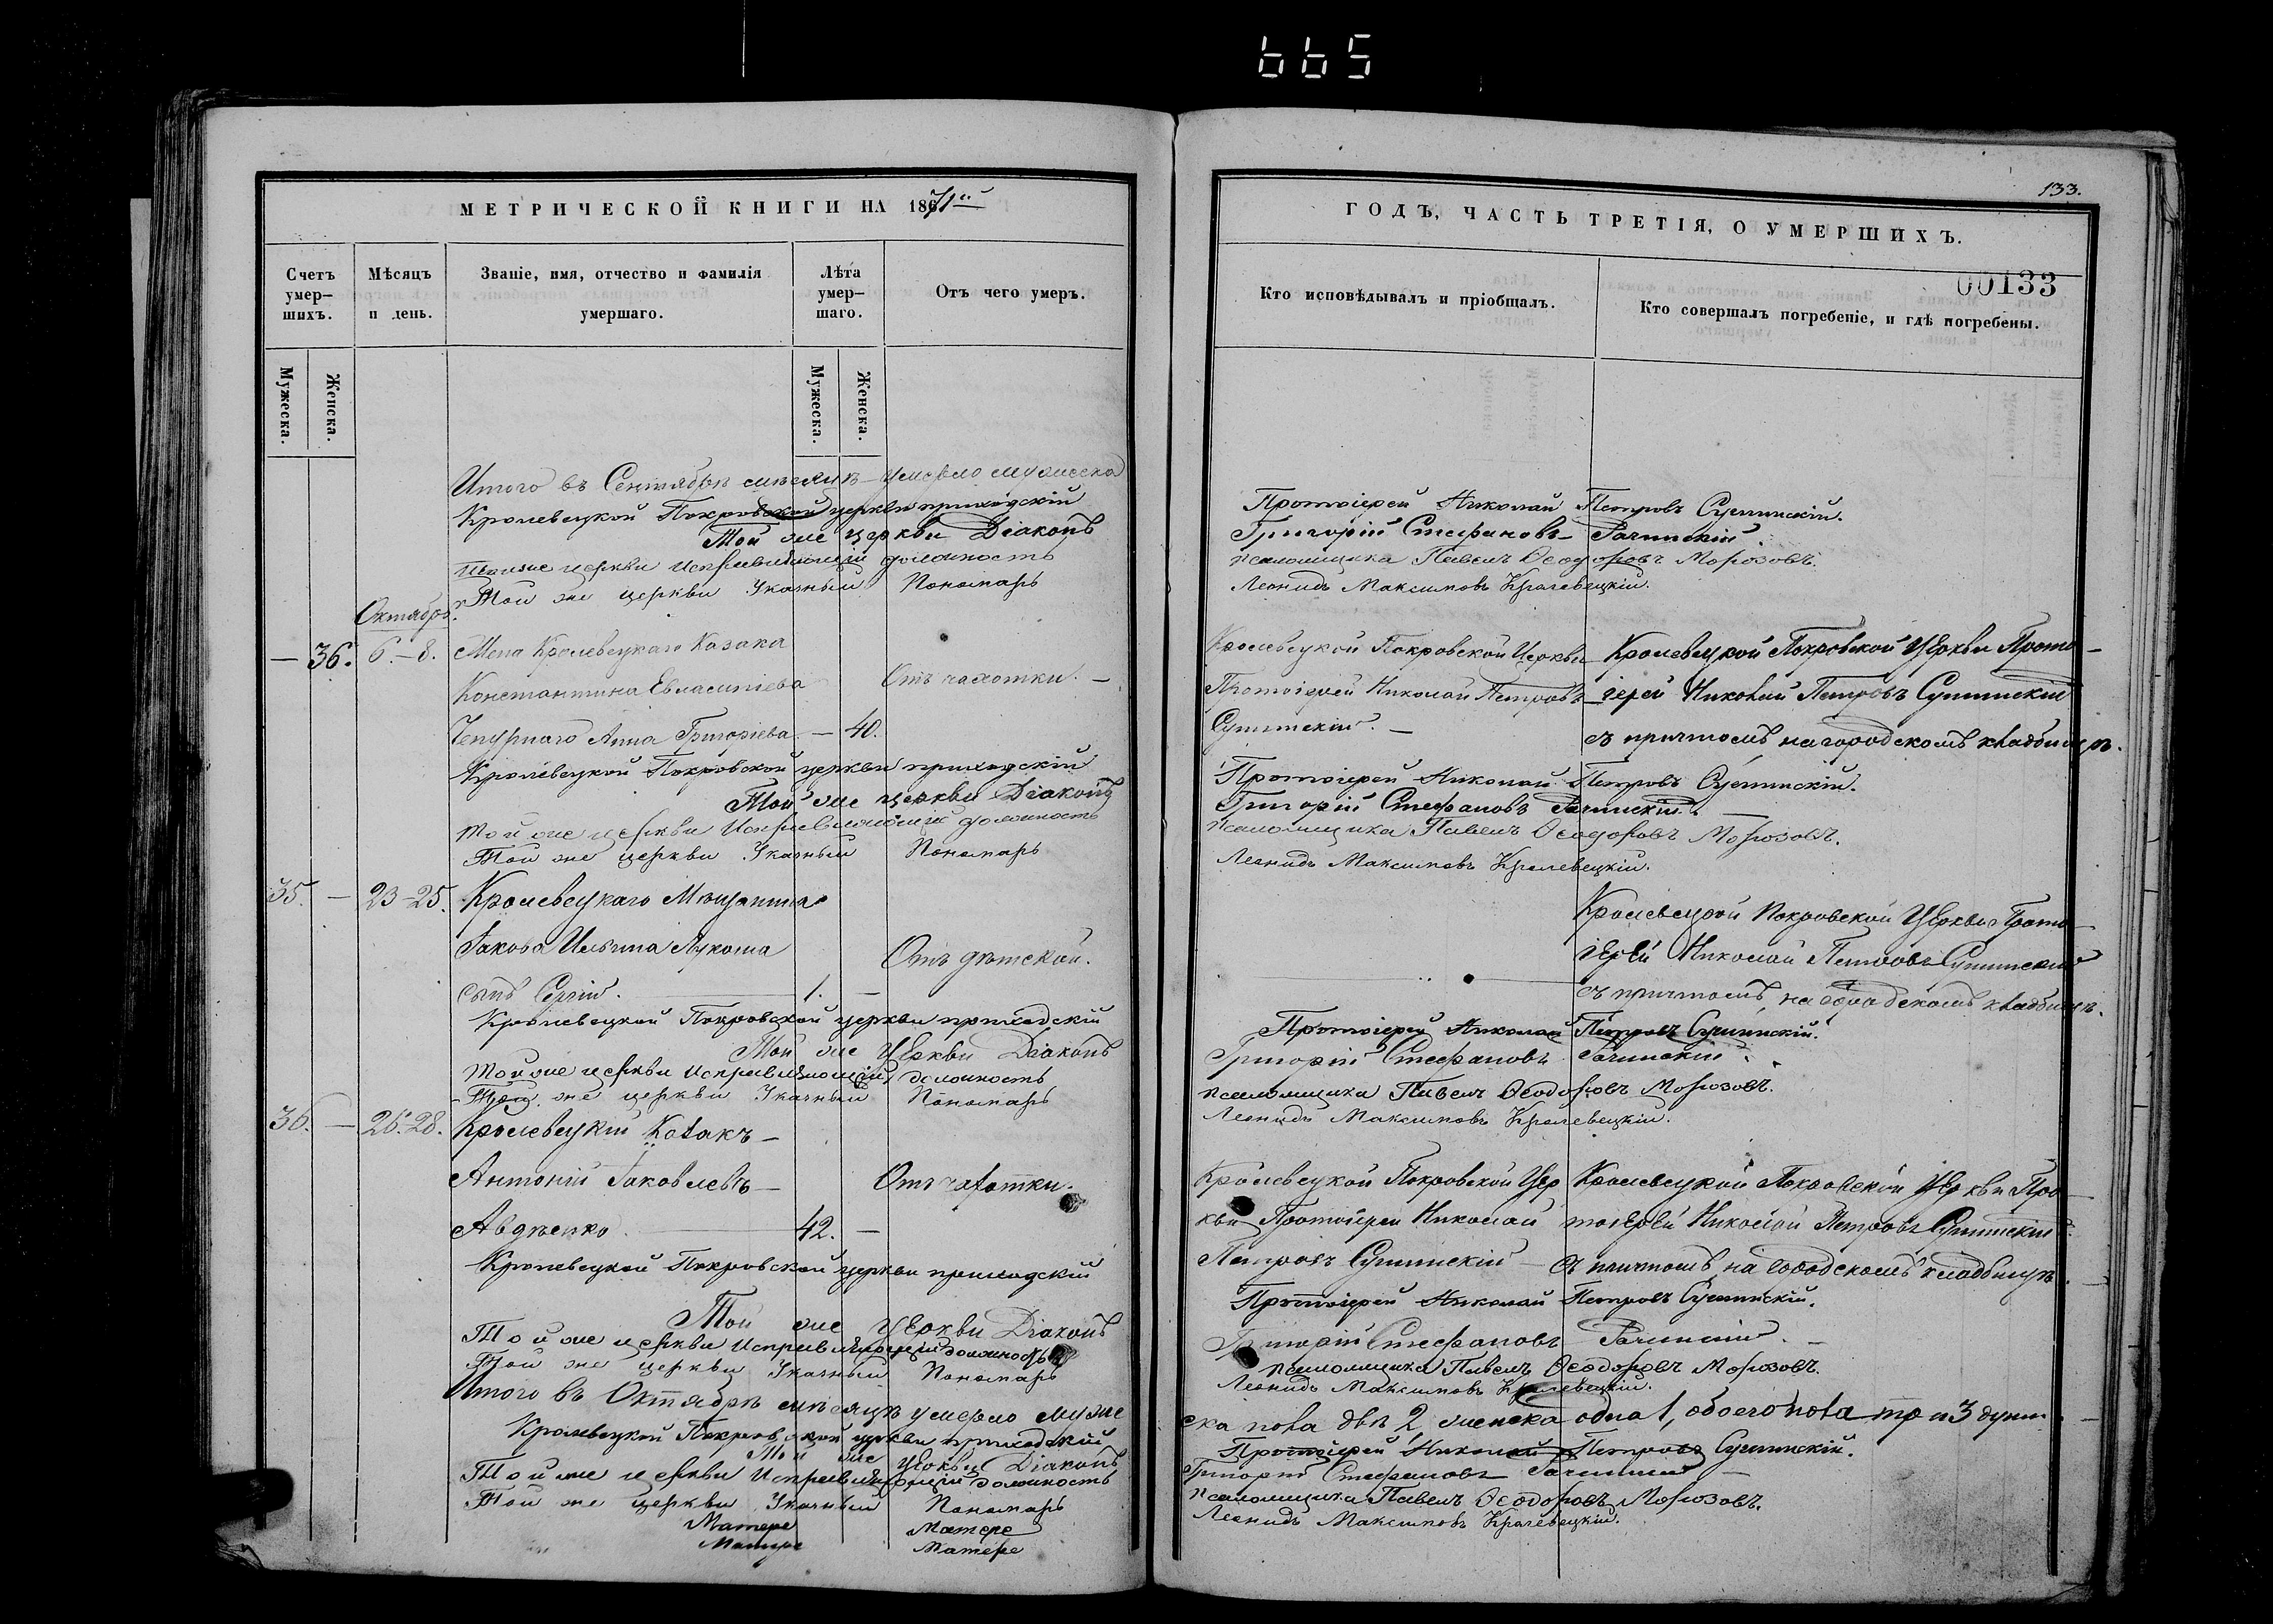 665
МЕТРИЧЕСКОЙ КНИГИ НА 1871й
Счетъ умер-шихъ.
Мѣсяцъ и день.
Званіе, имя, отчество и фамилія умершаго.
Лѣта умер-шаго.
Отъ чего умеръ.
Мужеска.
Женска.
Мужеска.
Женска.
Итого въ Сентябрѣ мѣсяцѣ умерло мужеска
Кролевецкой Покровской церкви приходскій
Той же церкви Діаконъ
Той же церкви Исправляющій должность
Той же церкви Указный Пономарь
Октябрь.
— 36. 6.-8. Жена Кролевецкаго Казака
Константина Евлампіева Отъ чахотки. —
Чепурнаго Анна Григоріева. — 40.
Кролевецкой Покровской церкви приходскій
Той же церкви Діаконъ
Той же церкви Исправляющій должность
Той же церкви Указный Пономарь
35. — 23-25. Кролевецкаго Мѣщанина
Іакова Ильина Лукаша Отъ дѣтской.
сынъ Сергій. 1. —
Кролевецкой Покровской церкви приходскій
Той же Церкви Діаконъ
Той же церкви Исправляющій должность
Той же церкви Указный Пономарь
36. — 26.-28. Кролевецкій Козакъ —
Антоній Іаковлевъ — Отъ чахотки.
Авдѣенко. 42. —
Кролевецкой Покровской церкви приходскій
Той же Церкви Діаконъ
Той же церкви Исправляющій должность
Той же церкви Указный Пономарь
Итого въ Октябрѣ мѣсяцѣ умерло муже
Кролевецкой Покровской церкви приходскій
Той же Церкви Діаконъ
Той же церкви Исправляющій должность
Той же церкви Указный Пономарь
133.
ГОДЪ, ЧАСТЬ ТРЕТІЯ, О УМЕРШИХЪ.
00133
Кто исповѣдывалъ и пріобщалъ.
Кто совершалъ погребеніе, и гдѣ погребены.
Протоіерей Николай Петровъ
Григорій Стефановъ
псаломщика Павелъ Ѳеодоровъ Морозовъ.
Леонидъ Максимовъ Кролевецкій.
Кролевецкой Покровской Церкви Кролевецкой Покровской Церкви Прото-
Протоіерей Николай Петровъ іерей Николай Петровъ
съ причтомъ на городскомъ кладбищѣ.
Протоіерей Николай Петровъ
Григорій Стефановъ
псаломщика Павелъ Ѳеодоровъ Морозовъ.
Леонидъ Максимовъ Кролевецкій.
Кролевецкой Покровской Церкви Прото-
іерей Николай Петровъ
съ причтомъ, на городскомъ кладбищѣ.
Протоіерей Николай Петровъ
Григорій Стефановъ
псаломщика Павелъ Ѳеодоровъ Морозовъ.
Леонидъ Максимовъ Кролевецкій.
Кролевецкой Покровской Цер Кролевецкой Покровской Церкви Про-
кви Протоіерей Николай тоіерей Николай Петровъ
Петровъ съ причтомъ, на городскомъ кладбищѣ.
Протоіерей Николай Петровъ
Григорій Стефановъ
псаломщика Павелъ Ѳеодоровъ Морозовъ.
Леонидъ Максимовъ Кролевецкій.
ска пола двѣ 2, женска одна 1, обоего пола три 3 души.
Протоіерей Николай Петровъ
Григорій Стефановъ
псаломщика Павелъ Ѳеодоровъ Морозовъ.
Леонидъ Максимовъ Кролевецкій.